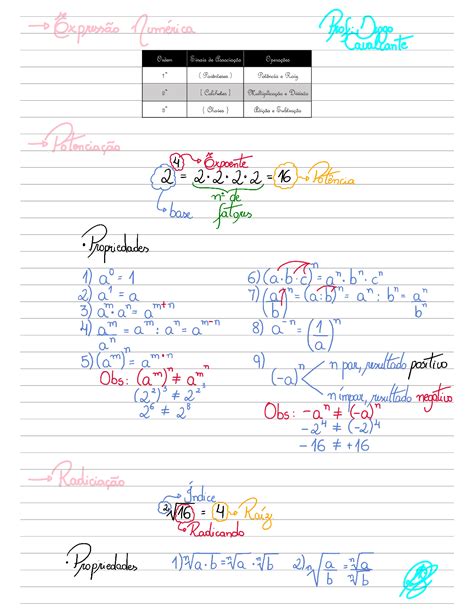 → Expressão Numérica
Prof: Diogo Cavalcante
Ordem | Sinais de Associação | Operações
1º | ( Parênteses ) | Potência e Raiz
2º | [ Colchetes ] | Multiplicação e Divisão
3º | { Chaves } | Adição e Subtração
→ Potenciação
4 → Expoente
2⁴ = 2·2·2·2 = 16 → Potência
base
nº de fatores
• Propriedades
1) a⁰ = 1
2) a¹ = a
3) aᵐ·aⁿ = aᵐ⁺ⁿ
4) aᵐ/aⁿ = aᵐ : aⁿ = aᵐ⁻ⁿ
5) (aᵐ)ⁿ = aᵐ·ⁿ
Obs: (aᵐ)ⁿ ≠ a^(mⁿ)
(2²)³ ≠ 2^(2³)
2⁶ ≠ 2⁸
6) (a·b·c)ⁿ = aⁿ·bⁿ·cⁿ
7) (a/b)ⁿ = (a:b)ⁿ = aⁿ : bⁿ = aⁿ/bⁿ
8) a⁻ⁿ = (1/a)ⁿ
9) (-a)ⁿ
n par, resultado positivo
n ímpar, resultado negativo
Obs: -aⁿ ≠ (-a)ⁿ
-2⁴ ≠ (-2)⁴
-16 ≠ +16
→ Radiciação
Índice
²√16 = 4 → Raiz
Radicando
• Propriedades
1) ⁿ√(a·b) = ⁿ√a · ⁿ√b
2) ⁿ√(a/b) = ⁿ√a/ⁿ√b